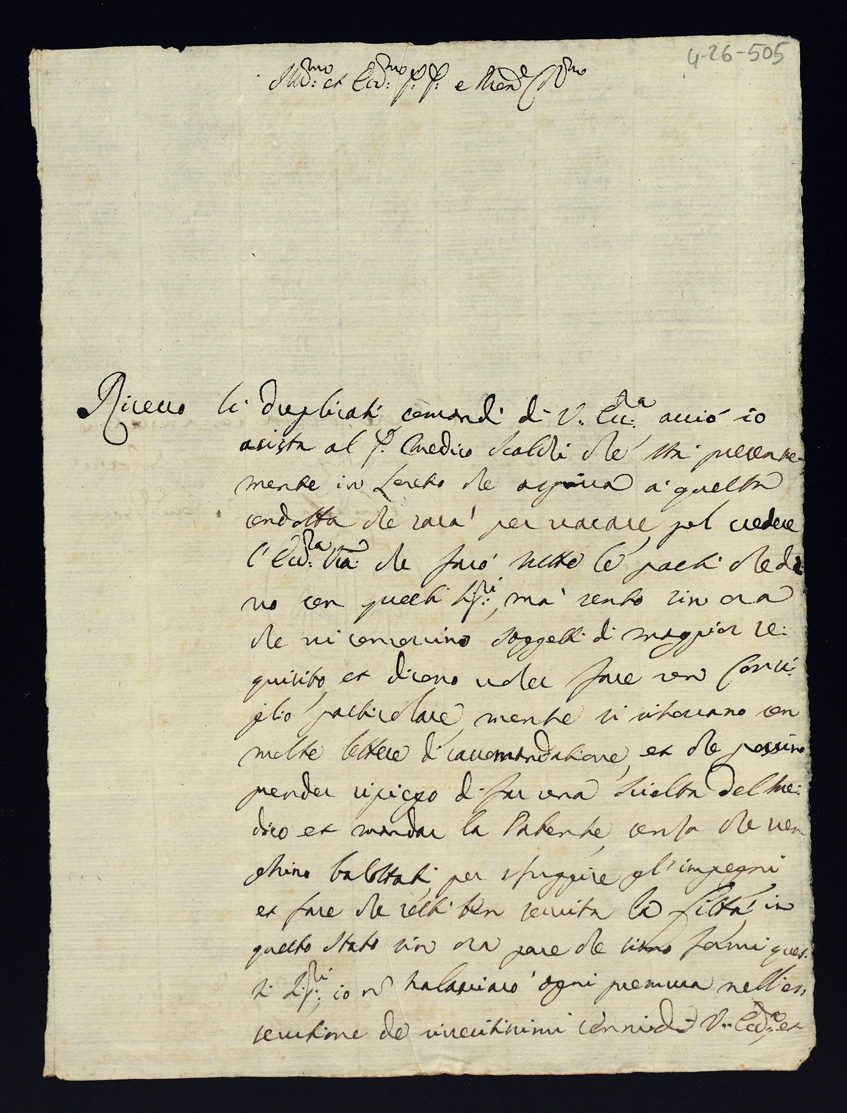 4-26-505
Ill.mo et Ecc.mo P. P. e
Riceuo li duplicati comandi di V. Ecc.a acciò io
asista al S. Medico Scaldi che stà presente-
mente in Loreto che aspira a quella
condotta che sarà per uacare, pol credere
l'Ecc.za V.ra che farò tutte le parti che de
uo con questi Sig.ri, mà sento sin ora
che ui concorrino soggetti di maggior re-
quisito, et dicono uoler fare un Consi-
glio particolare mentre si ritrouano con
molte lettere di raccomandatione, et che possino
prender ripiego di far una scielta del Me-
dico et mandar la Patente, senza che uen
ghino balottati, per sfuggire gl'impegni
et fare che resti ben seruita la Città, in
questo stato sin ora pare che siano fermi ques-
ti Sig.ri, io nō tralasciarò ogni premura nell'es-
secutione de riueritissimi cenni di V. Ecc.za, et